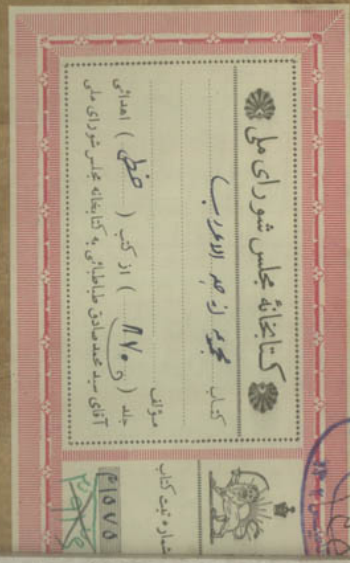 کتابخانهٔ مجلس شورای ملی
کتاب مجموعه از جد الاعراب
مؤلف
جلد ( ۸۷۰ ) از کتب ( خطی ) اهدائی
آقای سید محمد صادق طباطبائی به کتابخانه مجلس شورای ملی
شماره ثبت کتاب
۳۱۵۷۵